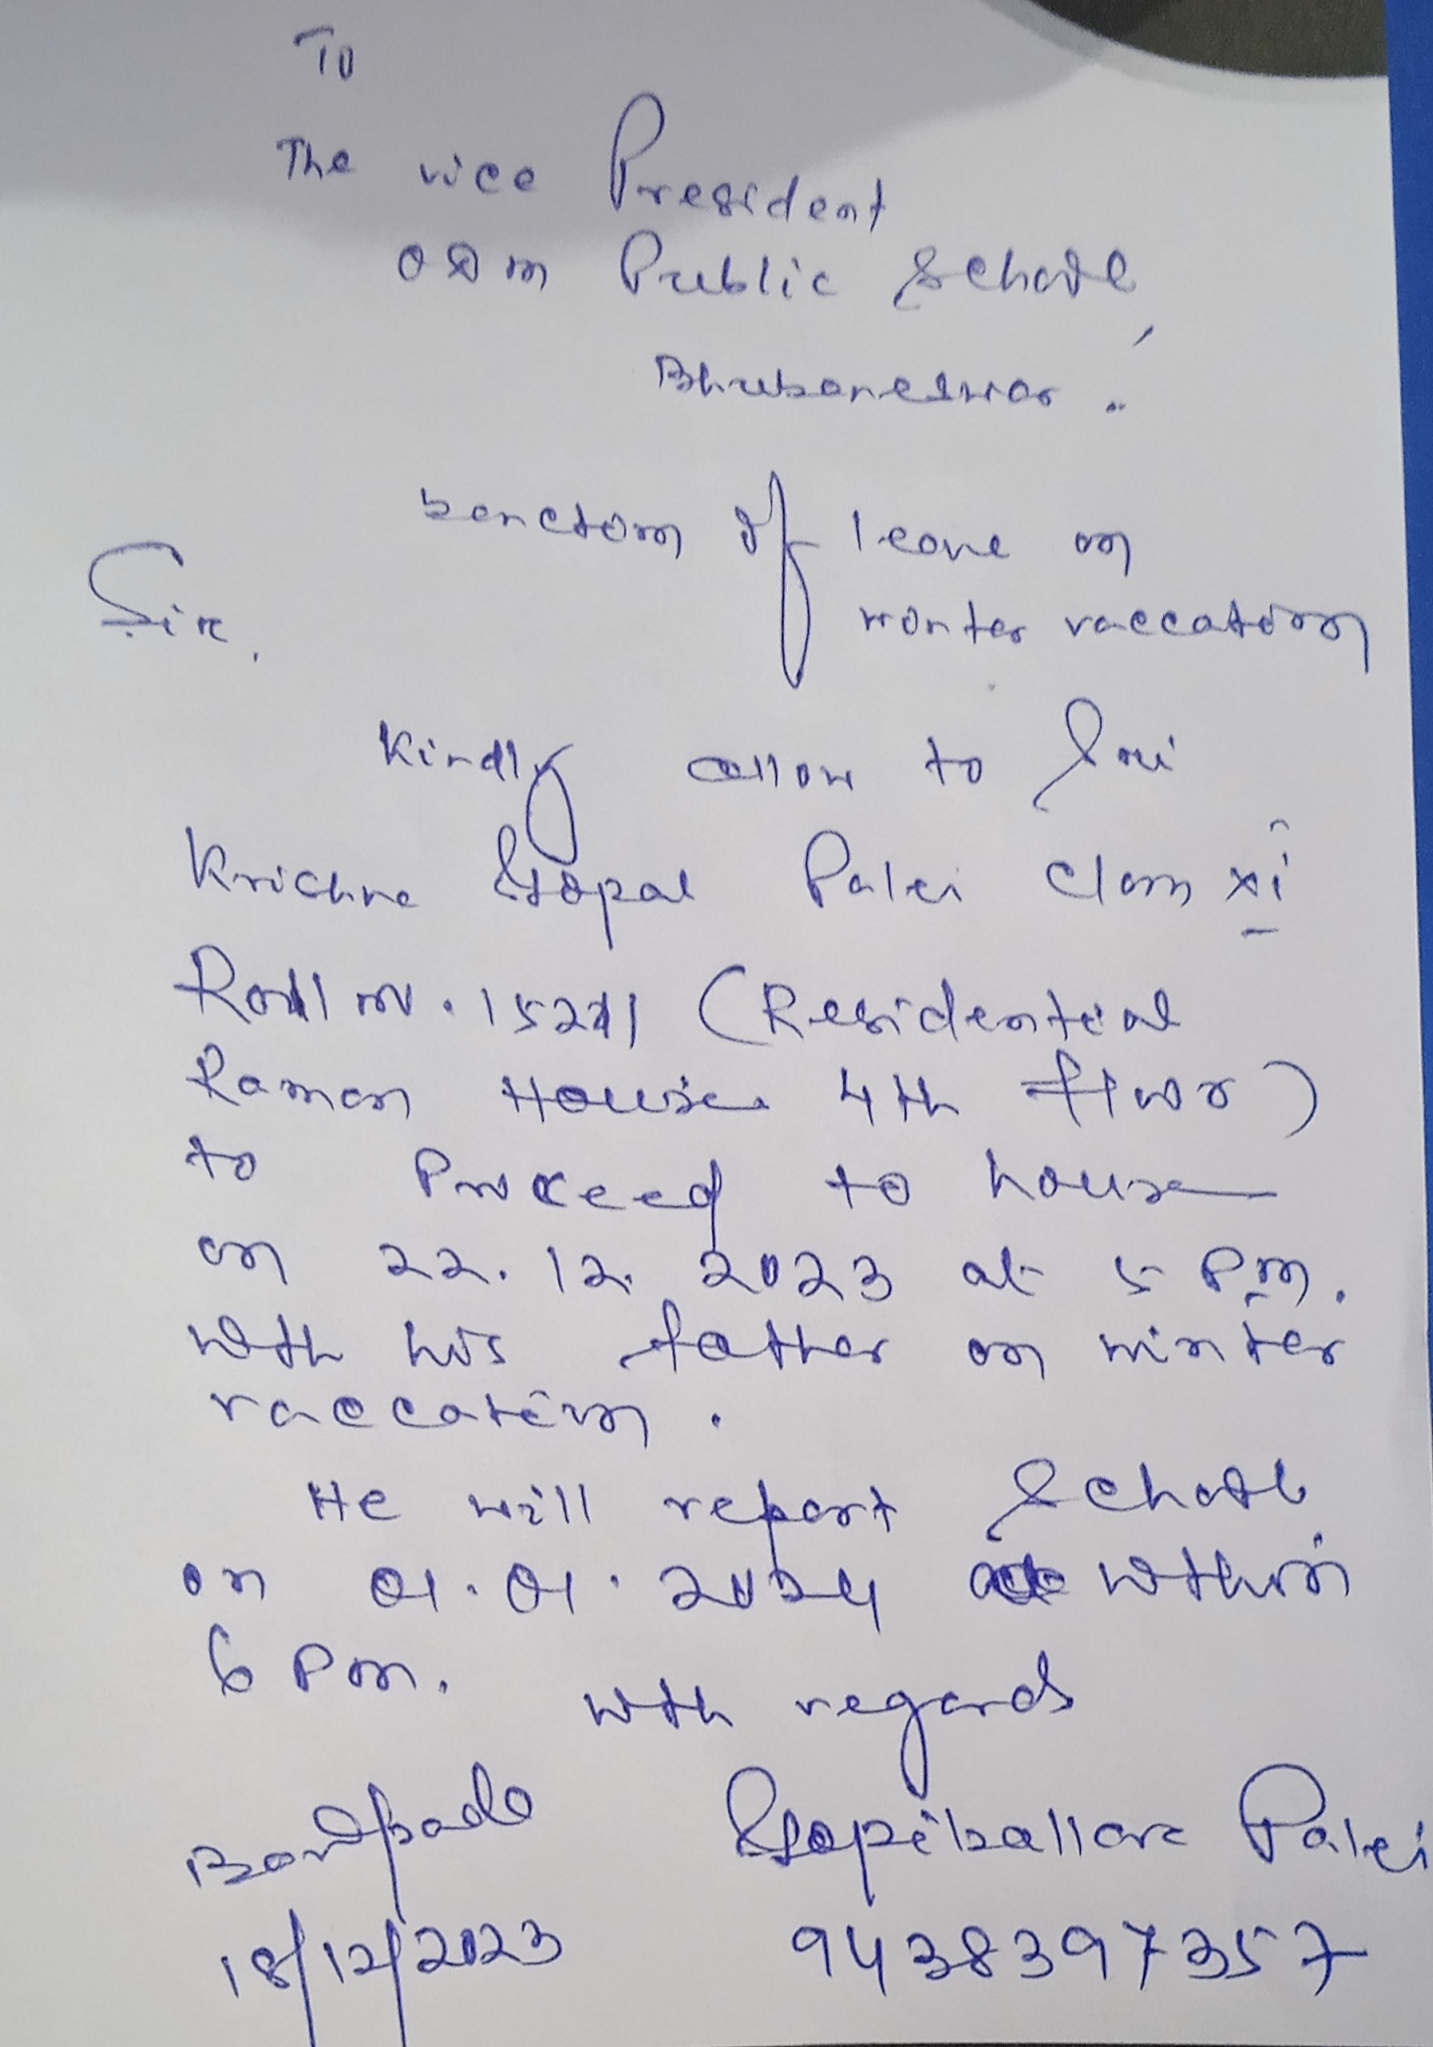 To
The vice President
ODM Public School,
Bhubaneswar.
Sanction of leave on
Sir,
winter vaccation
Kindly allow to Sri
Krishna Gopal Palei Class XI
Roll no. (Residential
Raman House 4th floor)
to Proceed to house
on 22.12.2023 at 5 Pm.
with his father on winter
vaccation.
He will report School
on 01.01.2024 within
6 Pm.
with regards
Gopiballav Palei
18/12/2023 9438397357